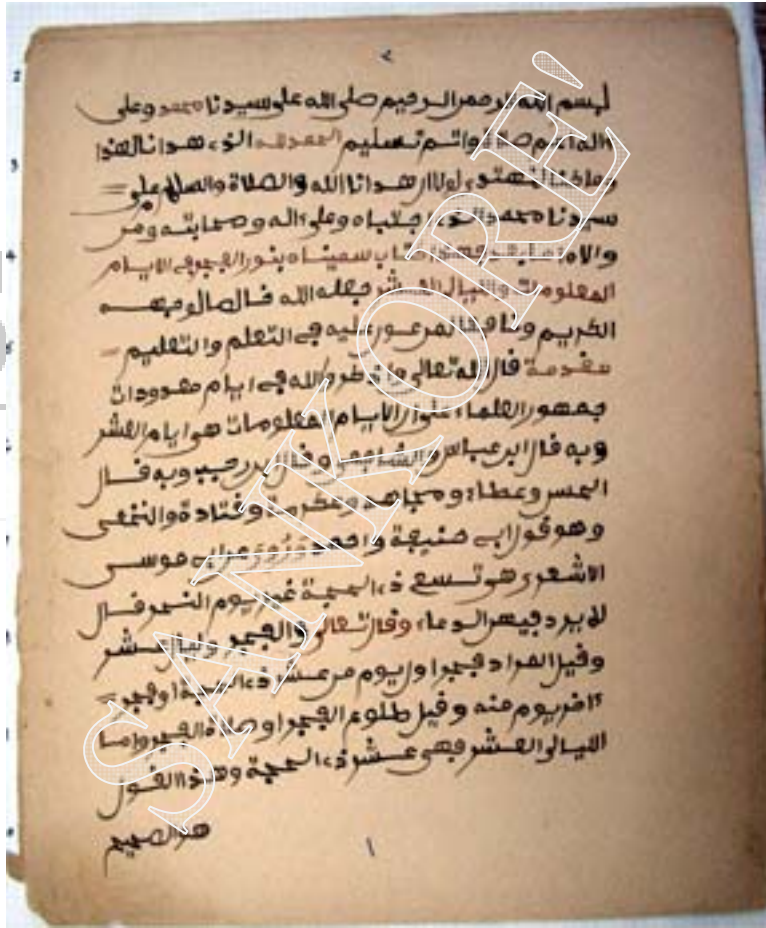 ٢
بسم الله الرحمن الرحيم صلى الله على سيدنا محمد وعلى
ءاله اتم صلاة واتم تسليم الحمد لله الذي هدانا لهذا
وما كنا لنهتدي لولا ان هدانا الله والصلاة والسلام على
سيدنا محمد الذي اجتباه وعلى ءاله وصحابته ومن
والاه اما بعد فهذا كتاب سميناه بنور الفجر في الايام
المعلومات والليال العشر جعله الله خالصا لوجهه
الكريم ونافعا لمن عور عليه في التعلم والتعليم
مقدمة قال الله تعالى واذكروا الله في ايام معدودات
جمهور العلماء على ان الايام المعلومات هي ايام العشر
وبه قال ابن عباس والشافعي وقال ابن رجب وبه قال
الحسن وعطاء ومجاهد وعكرمة وقتادة والنخعي
وهو قول ابي حنيفة واحمد وروي عن ابي موسى
الاشعري هو تسع ذي الحجة غير يوم النحر قال
لا يرد فيهن الدعاء وقال تعالى والفجر وليال عشر
وقيل المراد فجر اول يوم من عشر ذي الحجة او فجر
ءاخر يوم منه وقيل طلوع الفجر او صلاة الفجر واما
الليالي العشر فهي عشر ذي الحجة وهذا القول
هو الصحيح
١
SANKORE'